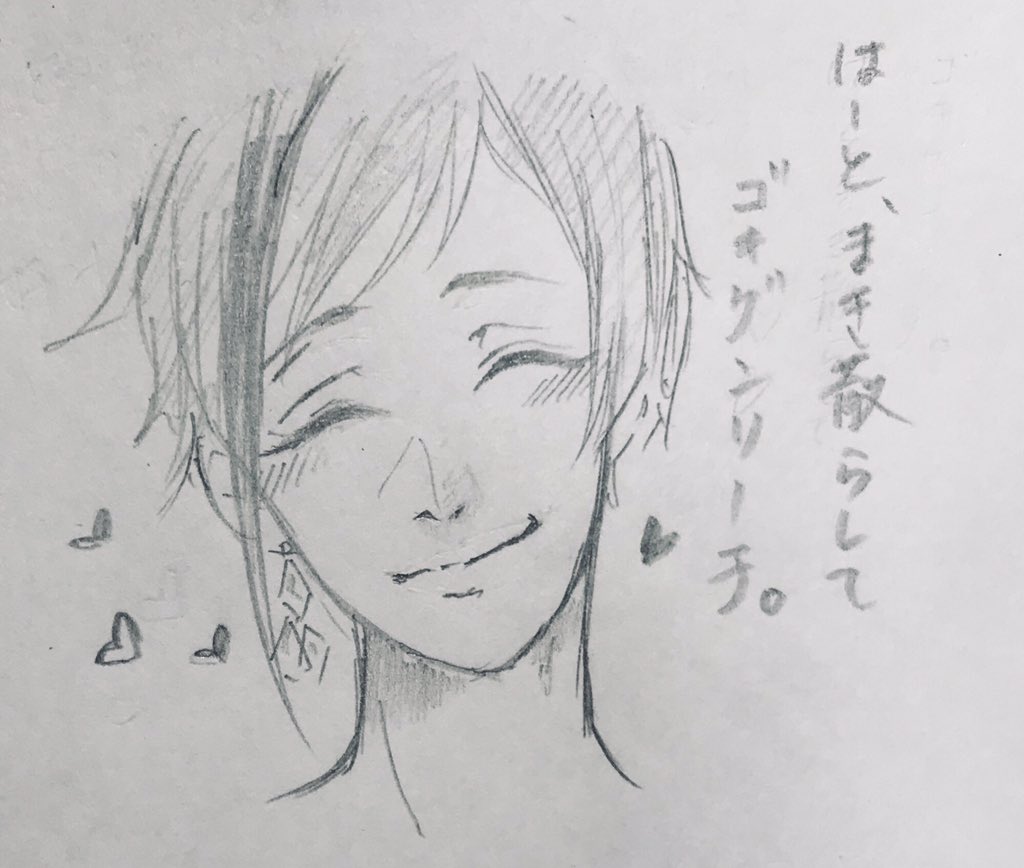 はーと、まき散らして
ゴキゲンリーチ。